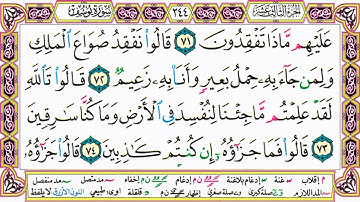 الجزء الثالث عشر ٢٤٤ سورة يوسف
عَلَيْهِم مَّاذَا تَفْقِدُونَ ٧١ قَالُوا۟ نَفْقِدُ صُوَاعَ ٱلْمَلِكِ
وَلِمَن جَآءَ بِهِۦ حِمْلُ بَعِيرٍ وَأَنَا۠ بِهِۦ زَعِيمٌ ٧٢ قَالُوا۟ تَٱللَّهِ
لَقَدْ عَلِمْتُم مَّا جِئْنَا لِنُفْسِدَ فِى ٱلْأَرْضِ وَمَا كُنَّا سَـٰرِقِينَ
٧٣ قَالُوا۟ فَمَا جَزَٰٓؤُهُۥٓ إِن كُنتُمْ كَـٰذِبِينَ ٧٤ قَالُوا۟ جَزَٰٓؤُهُۥ